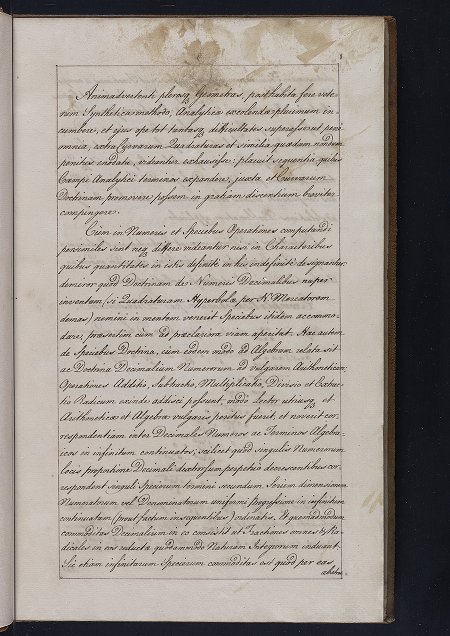 Animadvertenti plerosq Geometras, posthabita fere vete-
rum Synthetica methodo, Analyticæ excolendæ plurimum in-
cumbere, et ejus ope tot tantasq difficultates superasse ut pene
omnia extra Curvarum Quadraturas et similia quædam nondum
penitus enodata, videantur exhausisse: placuit sequentia quibus
Campi Analytici terminos expandere, juxta et Curvarum
Doctrinam promovere possem in gratiam discentium breviter
compingere.
Cùm in Numeris et Speciebus Operationes computandi
persimiles sint neq differre videantur nisi in Characteribus
quibus quantitates in istis definitè in his indefinitè designantur:
demiror quòd Doctrinam de Numeris Decimalibus nuper
inventam (si Quadraturam Hyperbolæ per N. Mercatorem
demas) nemini in mentem venerit Speciebus itidem accommo-
dare, præsertim cùm ad præclariora viam aperitat. Hæc autem
de Speciebus Doctrina, cum eodem modo ad Algebram relata sit
ac Doctrina Decimalium Numerorum ad vulgarem Arithmeticam;
Operationes Additio, Subductio, Multiplicatio, Divisio et Extrac-
tio Radicum exinde addisci possunt, modò Lector utriusq et
Arithmeticæ et Algebræ vulgaris peritus fuerit, et noverit cor-
respondentiam inter Decimales Numeros ac Terminos Algebra-
icos in infinitum continuatos; scilicet quòd singulis Numerorum
locis proportione Decimali dextrorsum perpetuo decrescentibus cor-
respondent singuli Specierum termini secundum seriem dimensionum
Numeratorum vel Denominatorum uniformi progressione in infinitum
continuatam (prout factum in sequentibus) ordinatis. Et quemadmodum
commoditas Decimalium in eo consistit ut Fractiones omnes et Ra-
dicales in eos reductæ quodammodo Naturam Integrorum induant.
Sic etiam infinitarum Specierum commoditas est quòd per eas